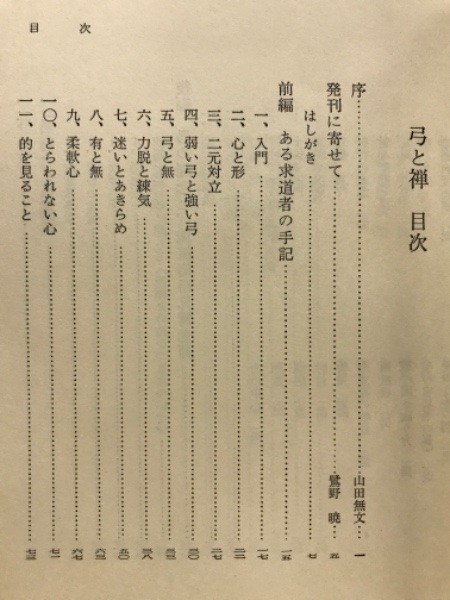 目次
弓と禅 目次
序……………山田無文…一
発刊に寄せて……………鷲野 暁…五
はしがき……………七
前編 ある求道者の手記……………一五
一、入門……………一七
二、心と形……………二二
三、二元対立……………二七
四、弱い弓と強い弓……………三〇
五、弓と無……………三三
六、力脱と練気……………三八
七、迷いとあきらめ……………五〇
八、有と無……………六三
九、柔軟心……………六七
一〇、とらわれない心……………七一
一一、的を見ること……………七三